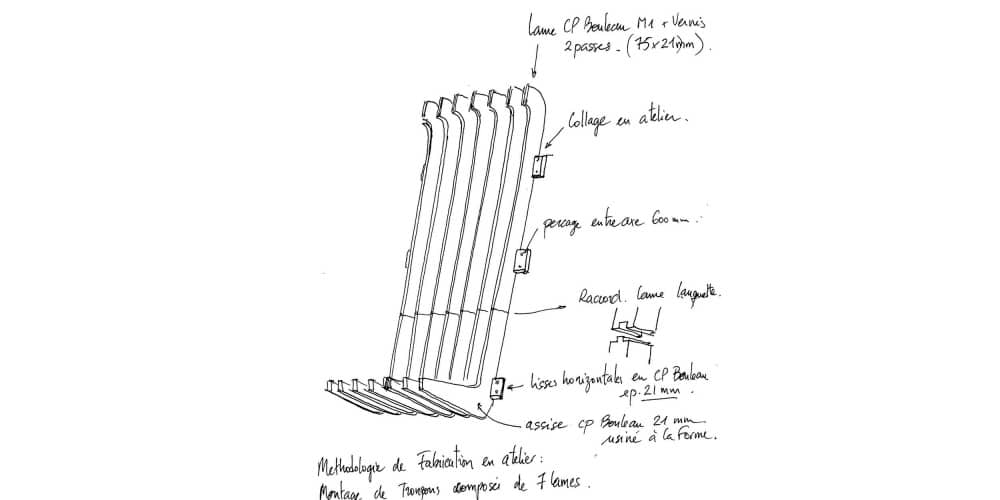 Lame CP Bouleau M1 + Vernis
2 passes - (75x21mm).
Collage en atelier.
percage entre axe 600 mm.
Raccord. Lame languette.
lisses horizontales en CP Bouleau
ep. 21 mm.
assise CP Bouleau 21 mm
usiné à la forme.
Methodologie de Fabrication en atelier :
Montage de Tronçons composés de 7 lames.